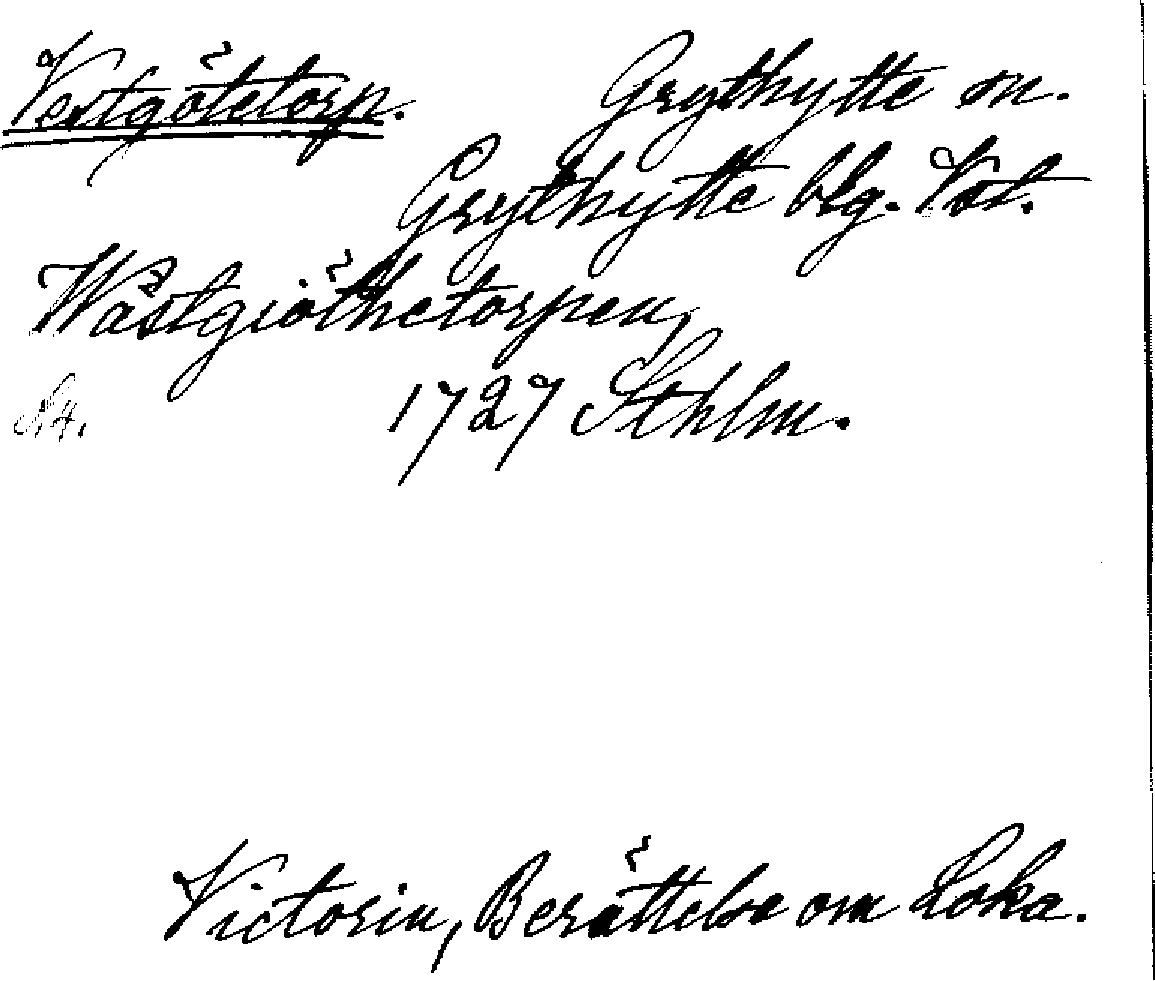 Vestgötetorp. Grythytte sn.
Grythytte blg. Vstl.
Wästgiöthetorpen,
1727 Sthlm.
Victorin, Berättelse om Loka.